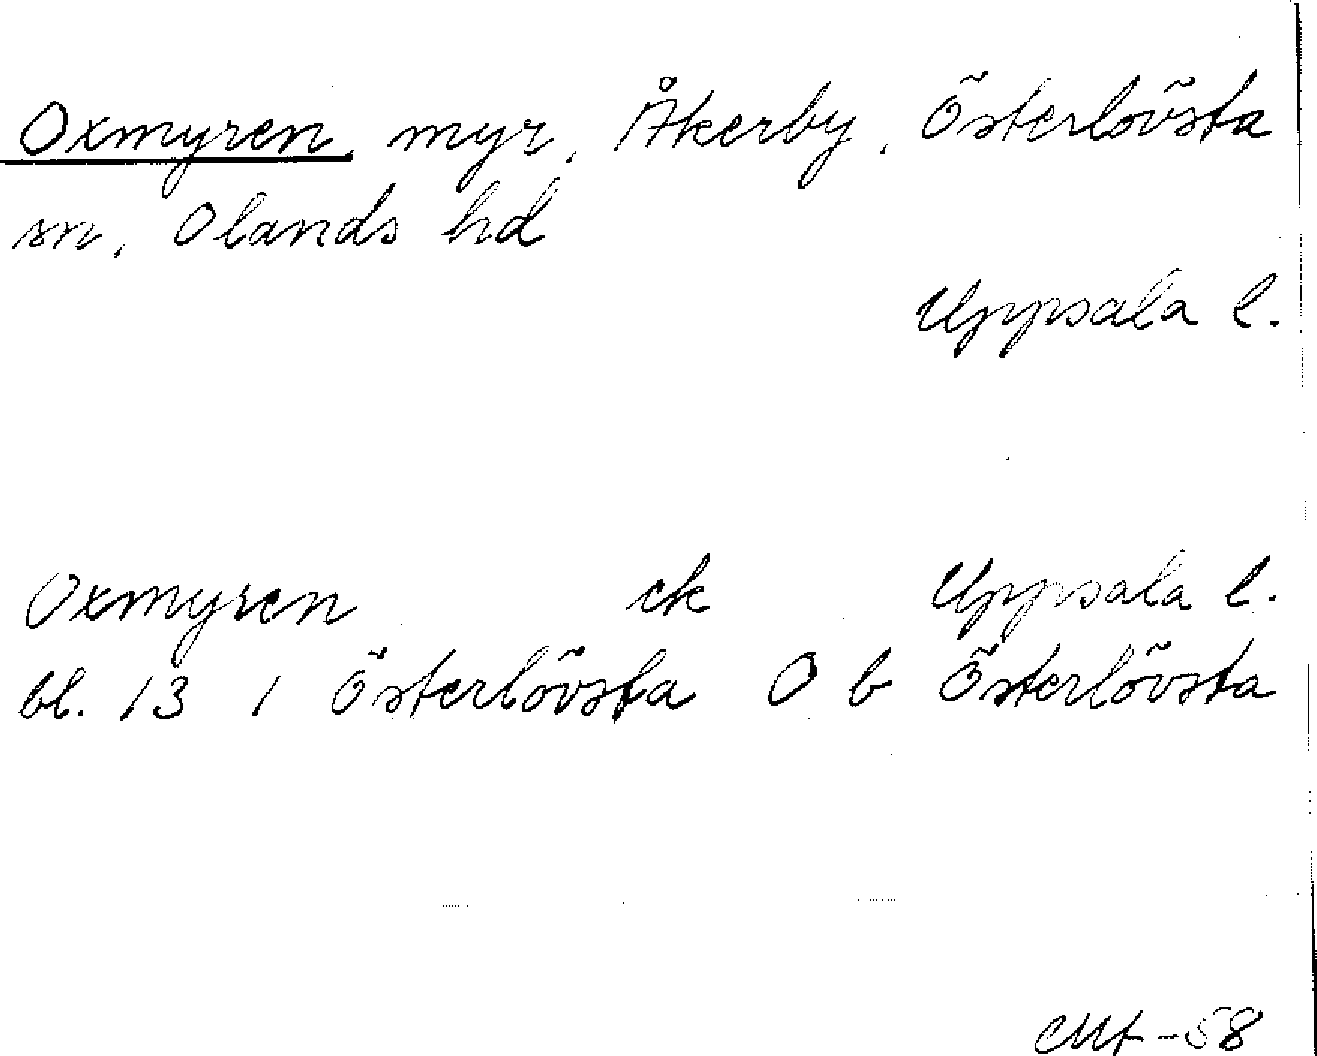 Oxmyren, myr, Åkerby, Österlövsta
sn, Olands hd
Uppsala l.
Oxmyren ek Uppsala l.
bl. 13 1 Österlövsta O b Österlövsta
-58